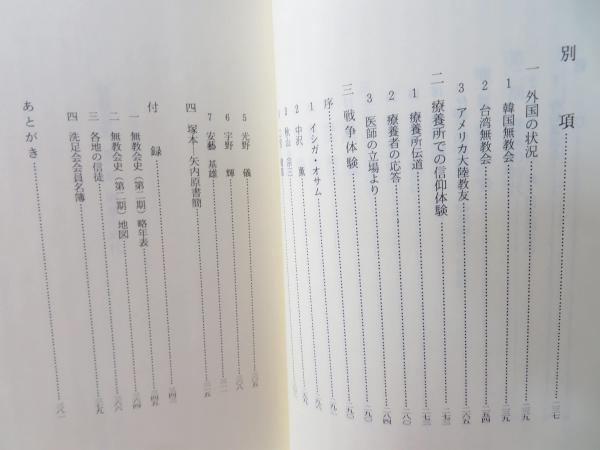 別項 二三七
一 外国の状況 二三九
1 韓国無教会 二三九
2 台湾無教会 二五四
3 アメリカ大陸教友 二六五
二 療養所での信仰体験 二七三
1 療養所伝道 二七三
2 療養者の応答 二八〇
3 医師の立場より 二八四
三 戦争体験 二九〇
序 二九〇
1 イシガ・オサム
2 中沢 薫
3 秋山 宗三
5 光野 儀 三〇五
6 宇野 輝 三〇八
7 安藝 基雄 三一一
四 塚本・矢内原書簡 三一五
付録 三四三
一 無教会史(第二期)略年表 三四五
二 無教会史(第二期)地図 三六四
三 各地の信徒 三六六
四 洗足会会員名簿 三七九
あとがき 三八一